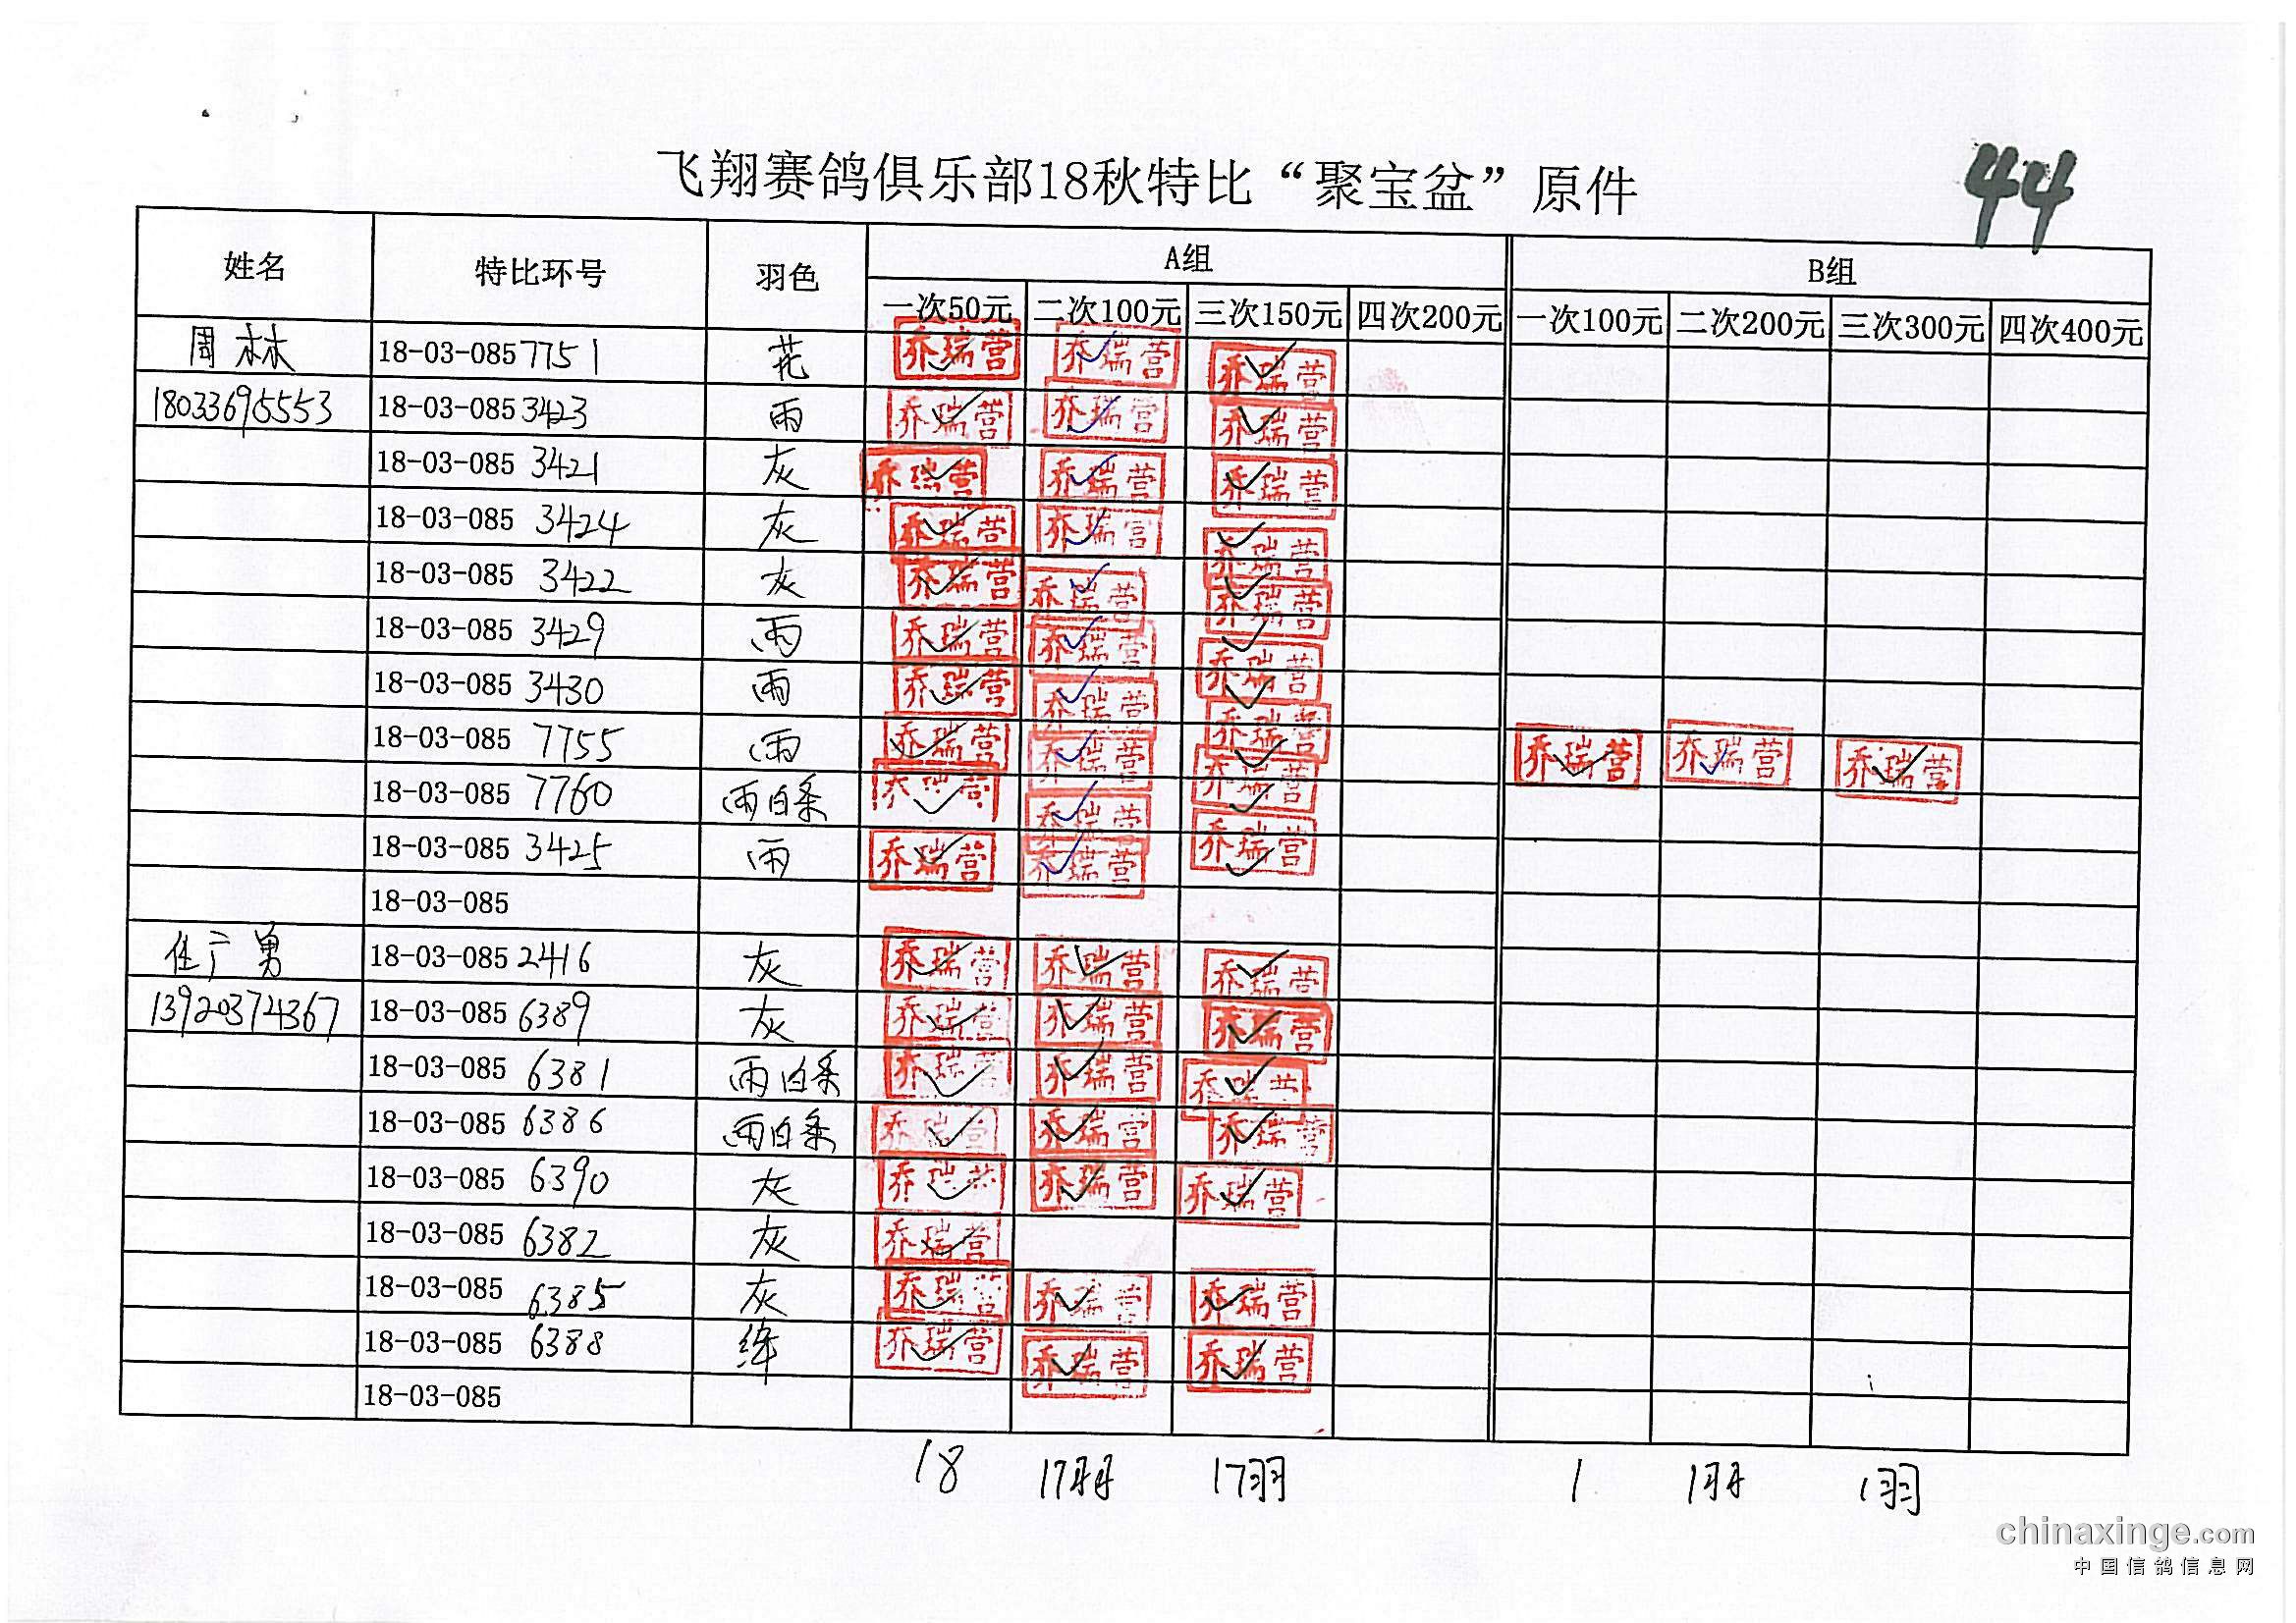 飞翔赛鸽俱乐部18秋特比“聚宝盆”原件
44
姓名 特比环号 羽色 A组 B组
一次50元 二次100元 三次150元 四次200元 一次100元 二次200元 三次300元 四次400元
周林 18-03-085 7751 花 乔瑞营 ✓ 乔瑞营 ✓ 乔瑞营 ✓
18033695553 18-03-085 3423 雨 乔瑞营 ✓ 乔瑞营 ✓ 乔瑞营 ✓
18-03-085 3421 灰 乔瑞营 ✓ 乔瑞营 ✓ 乔瑞营 ✓
18-03-085 3424 灰 乔瑞营 ✓ 乔瑞营 ✓ 乔瑞营 ✓
18-03-085 3422 灰 乔瑞营 ✓ 乔瑞营 ✓ 乔瑞营 ✓
18-03-085 3429 雨 乔瑞营 ✓ 乔瑞营 ✓ 乔瑞营 ✓
18-03-085 3430 雨 乔瑞营 ✓ 乔瑞营 ✓ 乔瑞营 ✓
18-03-085 7755 雨 乔瑞营 ✓ 乔瑞营 ✓ 乔瑞营 ✓ 乔瑞营 ✓ 乔瑞营 ✓ 乔瑞营 ✓
18-03-085 7760 雨白条 乔瑞营 ✓ 乔瑞营 ✓ 乔瑞营 ✓
18-03-085 3425 雨 乔瑞营 ✓ 乔瑞营 ✓ 乔瑞营 ✓
18-03-085
任广勇 18-03-085 2416 灰 乔瑞营 ✓ 乔瑞营 ✓ 乔瑞营 ✓
13920374367 18-03-085 6389 灰 乔瑞营 ✓ 乔瑞营 ✓ 乔瑞营 ✓
18-03-085 6381 雨白条 乔瑞营 ✓ 乔瑞营 ✓ 乔瑞营 ✓
18-03-085 6386 雨白条 乔瑞营 ✓ 乔瑞营 ✓ 乔瑞营 ✓
18-03-085 6390 灰 乔瑞营 ✓ 乔瑞营 ✓ 乔瑞营 ✓
18-03-085 6382 灰 乔瑞营 ✓
18-03-085 6385 灰 乔瑞营 ✓ 乔瑞营 ✓ 乔瑞营 ✓
18-03-085 6388 绛 乔瑞营 ✓ 乔瑞营 ✓ 乔瑞营 ✓
18-03-085
18 17羽 17羽 1 1羽 1羽
chinaxinge.com
中国信鸽信息网